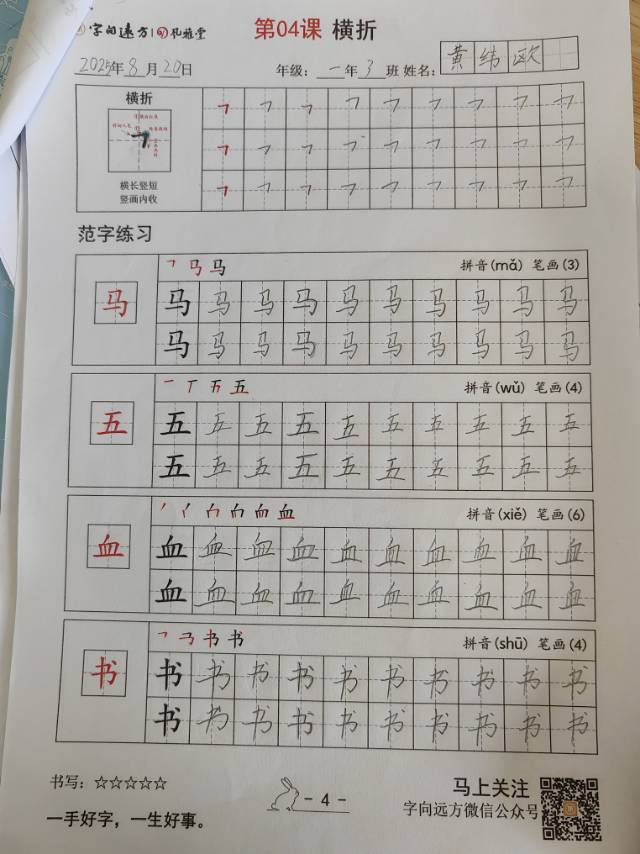 字向远方 礼雅堂
第04课 横折
2025年8月20日
年级：一年3班 姓名：黄纬欧
横折
横长竖短
竖画内收
范字练习
马 拼音(mǎ) 笔画(3)
马 马 马 马 马 马 马 马 马 马 马
马 马 马 马 马 马 马 马 马 马
五 拼音(wǔ) 笔画(4)
五 五 五 五 五 五 五 五 五 五 五
五 五 五 五 五 五 五 五 五 五
血 拼音(xiě) 笔画(6)
血 血 血 血 血 血 血 血 血 血 血
血 血 血 血 血 血 血 血 血 血
书 书 拼音(shū) 笔画(4)
书 书 书 书 书 书 书 书 书 书 书
书 书 书 书 书 书 书 书 书 书
书写：☆☆☆☆☆
- 4 -
马上关注
字向远方微信公众号
一手好字，一生好事。